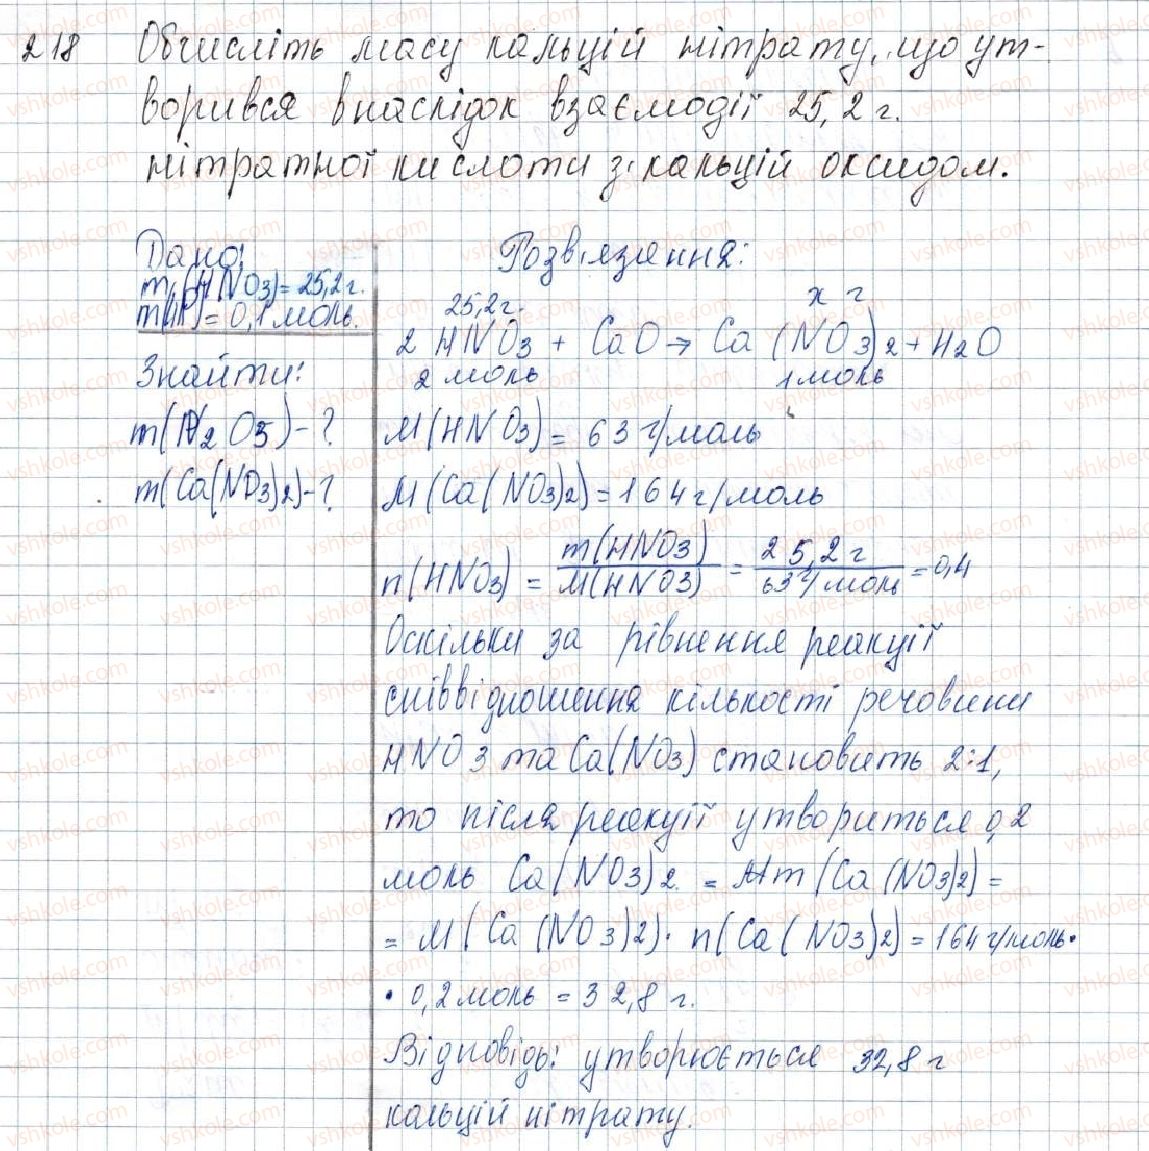 218 Обчисліть масу кальцій нітрату, що ут-
ворився внаслідок взаємодії 25,2 г.
нітратної кислоти зі кальцій оксидом.
Дано:
m(HNO3) = 25,2 г.
= 0,1 моль.
Знайти:
m(P2O5) - ?
m(Ca(NO3)2) - ?
Розв'язання:
25,2 г. x г
2 HNO3 + CaO → Ca(NO3)2 + H2O
2 моль 1 моль
M(HNO3) = 63 г/моль
M(Ca(NO3)2) = 164 г/моль
n(HNO3) = m(HNO3) / M(HNO3) = 25,2 г / 63 г/моль = 0,4
Оскільки за рівнення реакції
співвідношення кількості речовини
HNO3 та Ca(NO3) становить 2:1,
то після реакції утвориться 0,2
моль Ca(NO3)2. = m(Ca(NO3)2) =
= M(Ca(NO3)2) · n(Ca(NO3)2) = 164 г/моль ·
· 0,2 моль = 32,8 г.
Відповідь: утворюється 32,8 г
кальцій нітрату.
vshkole.com